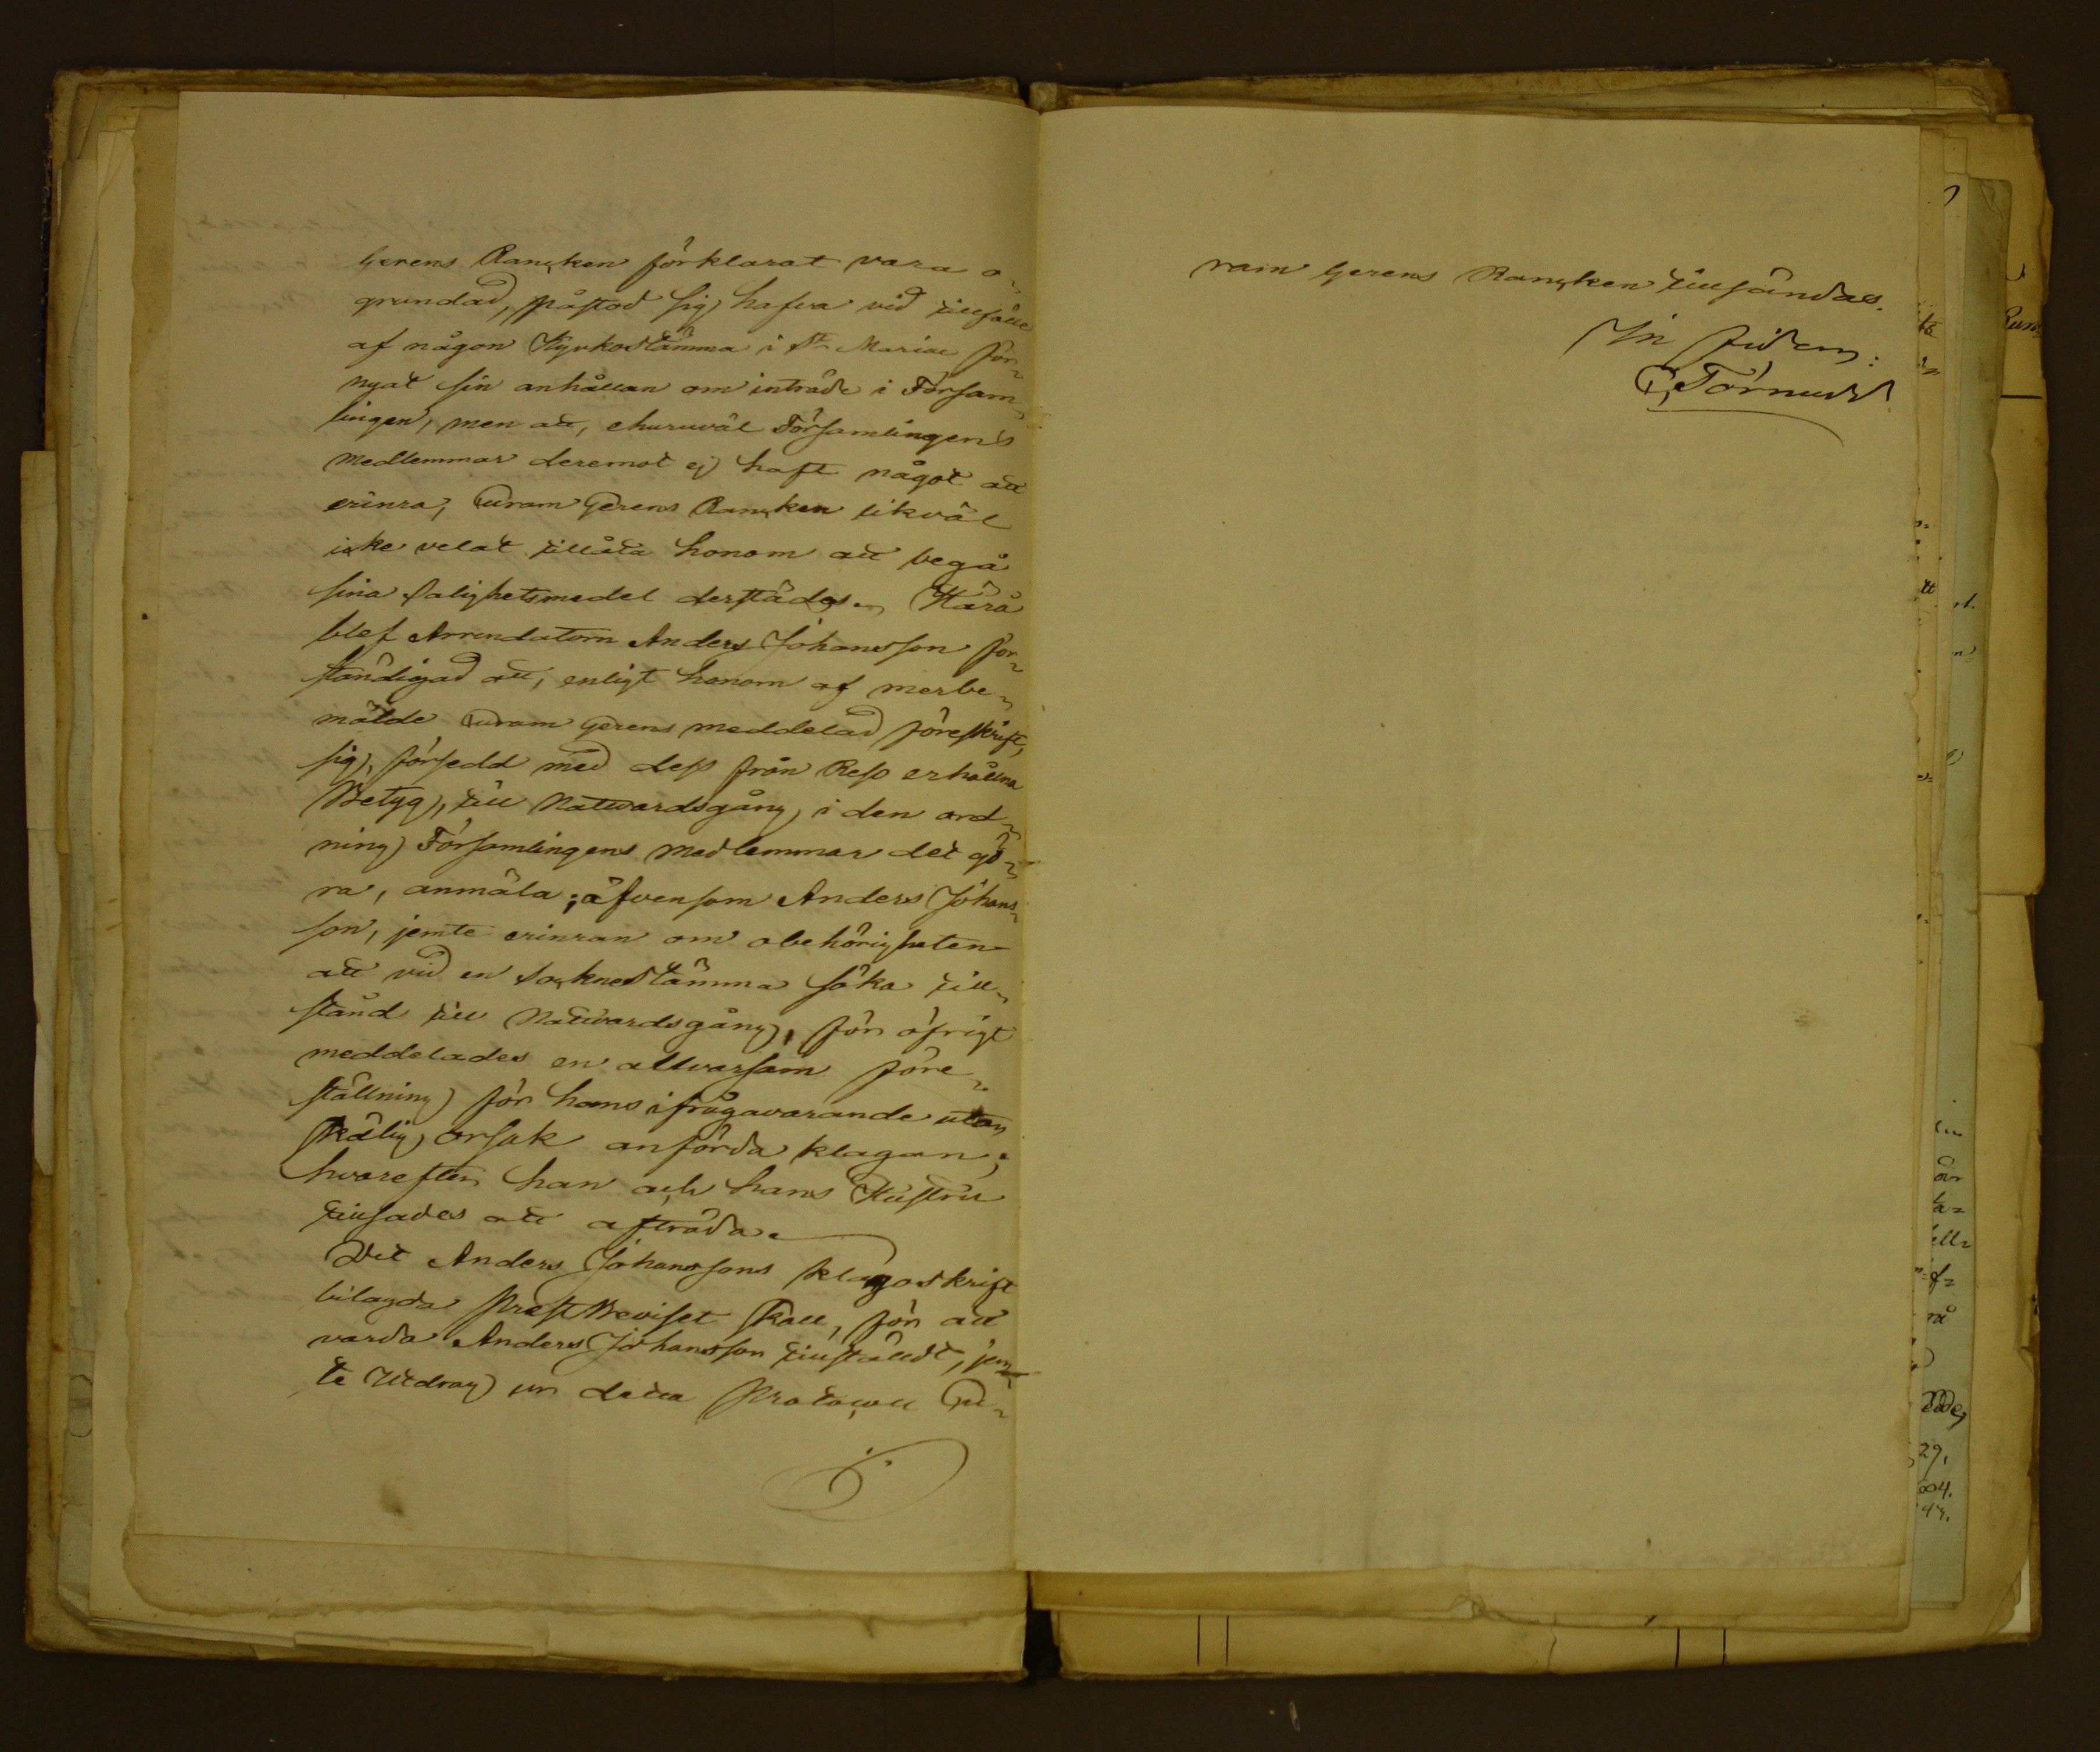 Gerens Rancken förklarat vara o-
grundad, påstod sig hafva vid tillfälle
af någon Kyrkostämma i St Mariae för-
nyat sin anhållan om inträde i Försam-
lingen, men att, ehuruväl Församlingens
Medlemmar deremot ej haft något att
erinra, Curam Gerens Rancken likväl
icke velat tillåta honom att begå
sina Salighetsmedel derstädes. Härå
blef Arrendatorn Anders Johansson för-
ständigad att, enligt honom af merbe-
mälde Curam Gerens meddelad föreskrift,
sig, försedd med dess från Reso erhållna
Betyg, till Nattvardsgång, i den ord-
ning Församlingens Medlemmar det gö-
ra, anmäla; äfvensom Anders Johans-
son, jemte erinran om obehörigheten
att vid en Socknestämma söka till-
stånd till Nattvardsgång, för öfrigt
meddelades en allvarsam före-
ställning för hans ifrågavarande utan
skälig orsak anförda klagan;
hvarefter han och hans Hustru
tillsades att afträda.
Det Anders Johanssons klagoskrift
bilagda PrestBeviset skall, för att
varda Anders Johansson tillstäldt, jem-
te Utdrag ur detta Protocoll Cu-
ram Gerens Rancken tillsändas.
In fidem:
C. Törnudd